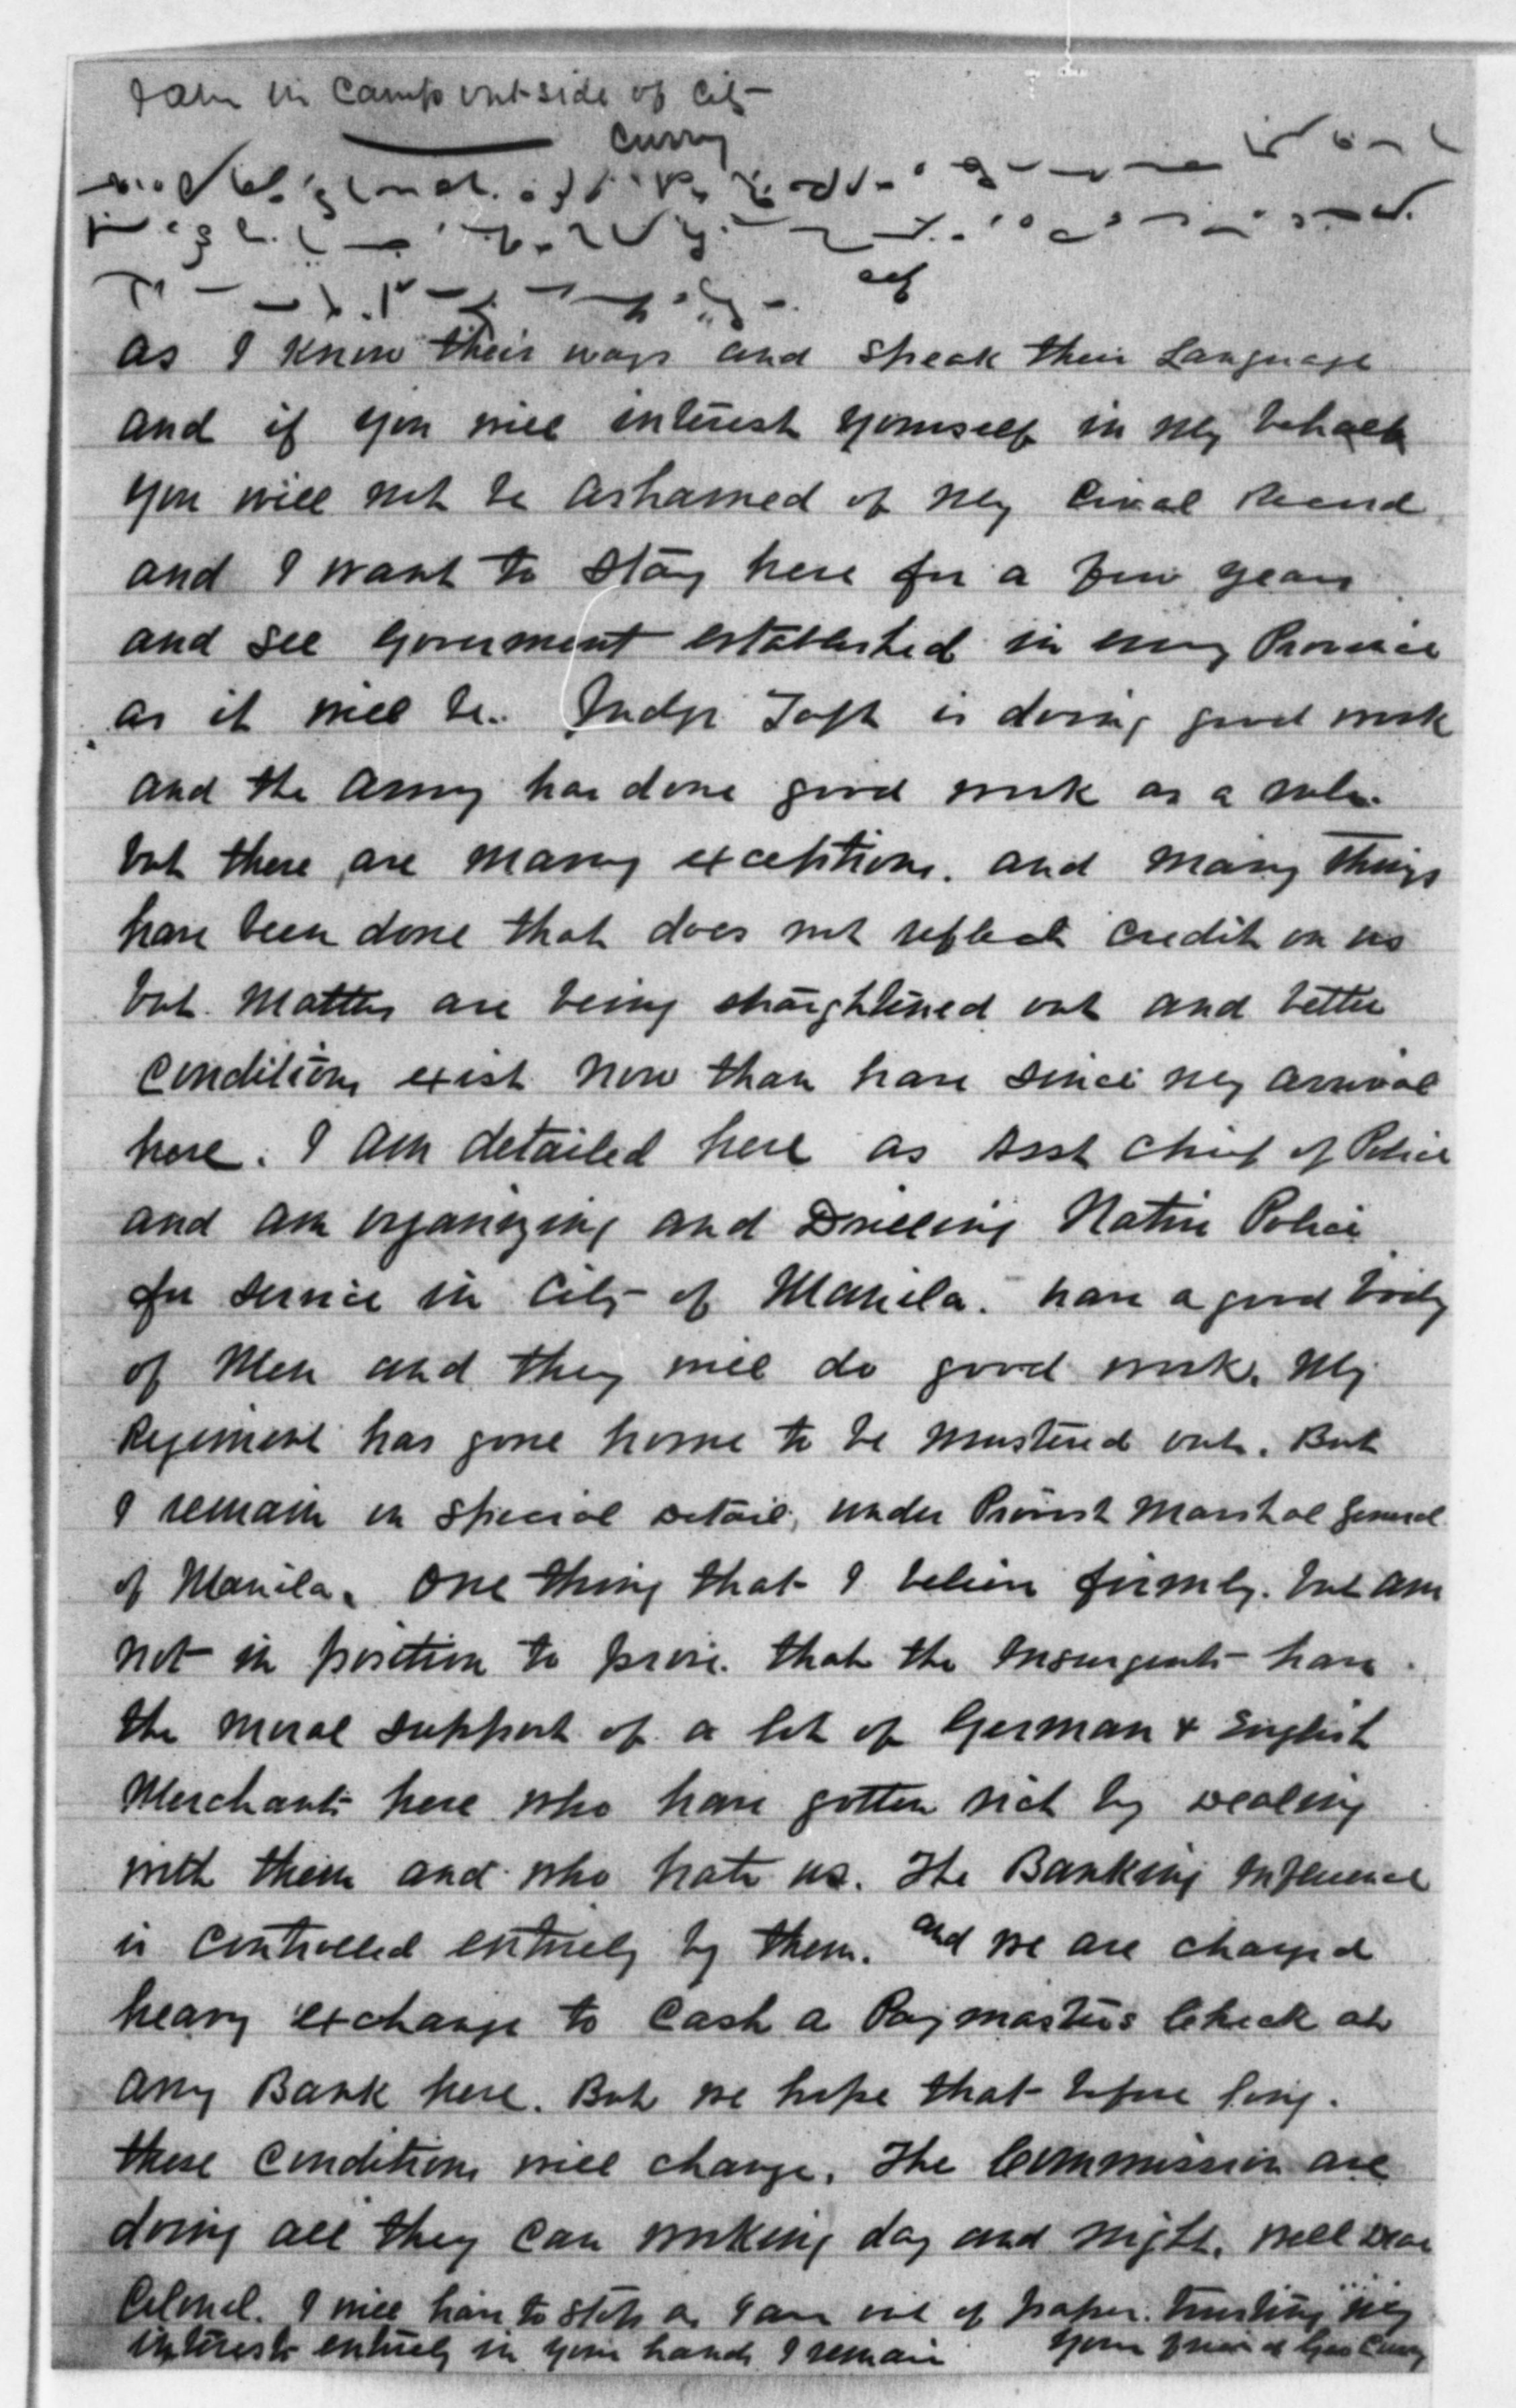 I am in camp out-side of City
Curry
ack
as I know their ways and speak their Language
and if you will interest yourself in my behalf
you will not be ashamed of my Civil Record
and I want to stay here for a few years
and see Goverment established in every Province
as it will be. Judge Taft is doing good work
and the Army has done good work as a rule.
but there are many exceptions. and many things
have been done that does not reflect credit on us
but matters are being straightened out and better
conditions exist now than have since my arrival
here. I am detailed here as Asst Chief of Police
and am organizing and Drilling Native Police
for service in City of Manila. have a good body
of Men and they will do good work. My
Regiment has gone home to be mustered out. But
I remain on special detail, under Provost Marshal General
of Manila. One thing that I believe firmly. but am
not in position to prove. that the Insurgents have
the moral support of a lot of German & English
Merchants here who have gotten rich by dealing
with them and who hate us. The Banking Influence
is controlled entirely by them. and we are charged
heavy exchange to Cash a Paymasters Check at
any Bank here. But we hope that before long.
these conditions will change. The Commission are
doing all they can working day and night. Well Dear
Colonel. I will have to stop as I am out of paper. trusting my
interests entirely in your hands I remain your friend Geo Curry